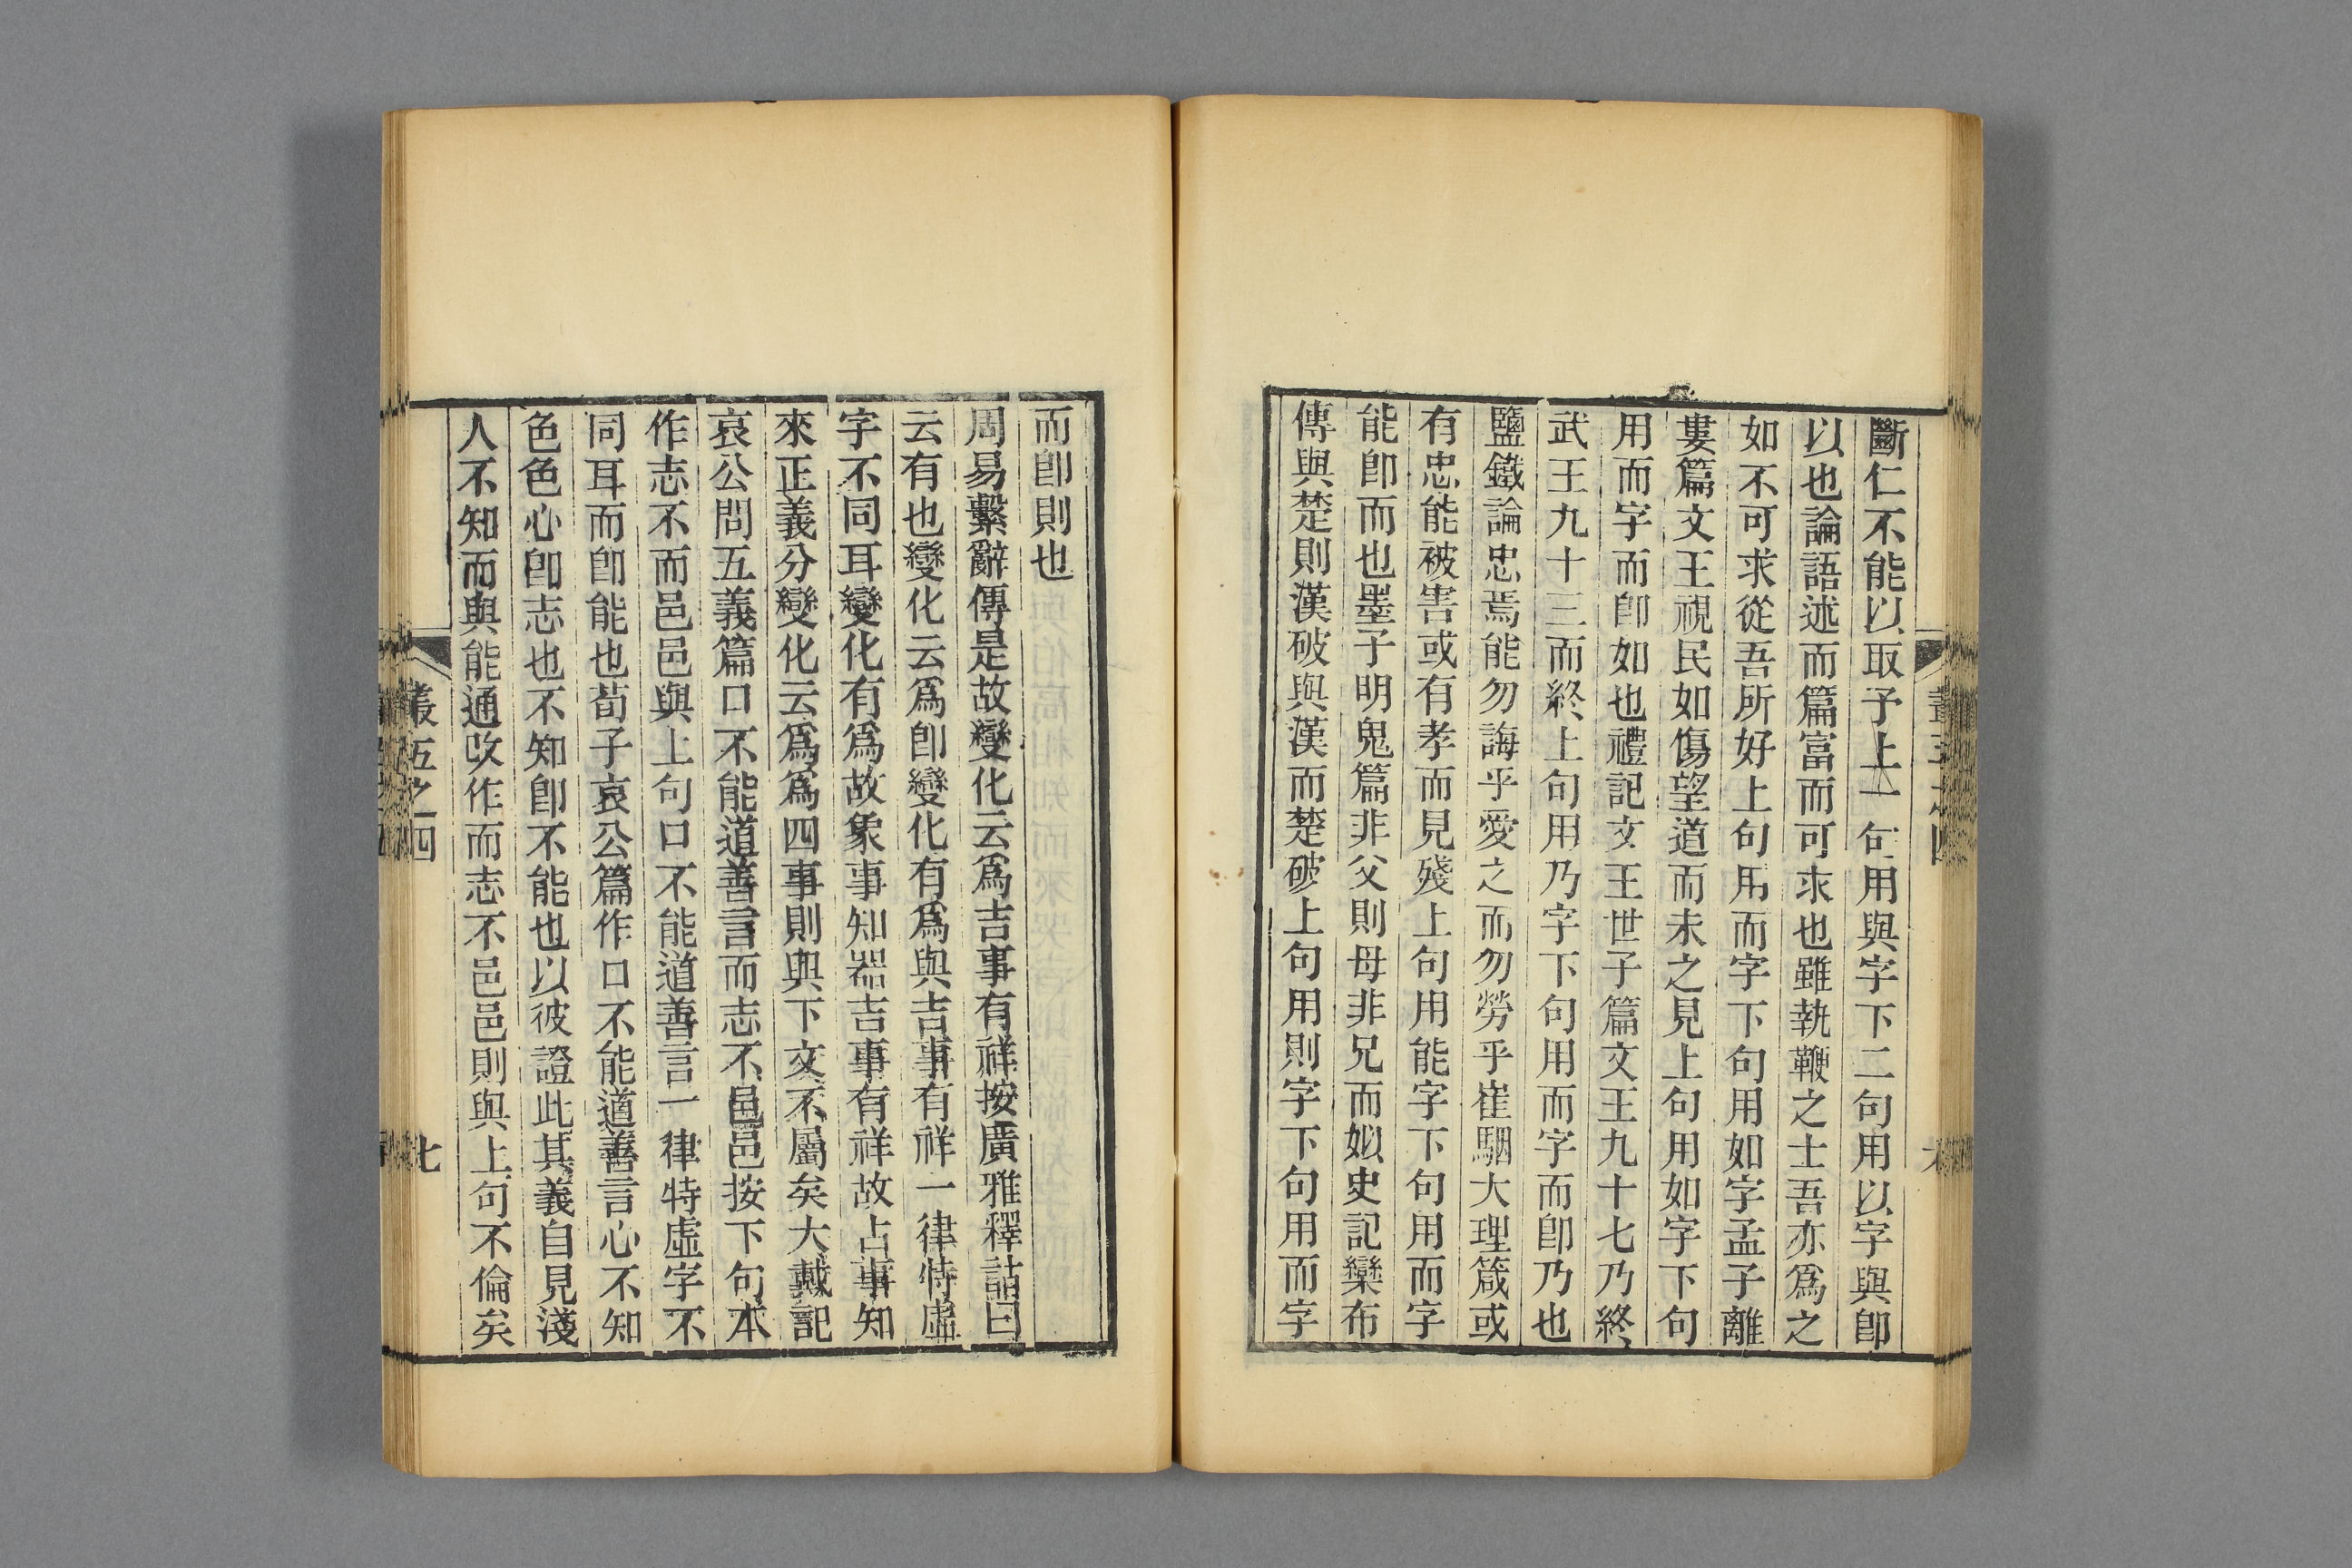 斷仁不能以取予上一句用與字下二句用以字與卽
以也論語述而篇富而可求也雖執鞭之士吾亦爲之
如不可求從吾所好上句用而字下句用如字孟子離
婁篇文王視民如傷望道而未之見上句用如字下句
用而字而卽如也禮記文王世子篇文王九十七乃終
武王九十三而終上句用乃字下句用而字而卽乃也
鹽鐵論忠焉能勿誨乎愛之而勿勞乎崔駰大理箴或
有忠能被害或有孝而見殘上句用能字下句用而字
能卽而也墨子明鬼篇非父則母非兄而姒史記欒布
傳與楚則漢破與漢而楚破上句用則字下句用而字
而卽則也
周易繫辭傳是故變化云爲吉事有祥按廣雅釋詁曰
云有也變化云爲卽變化有爲與吉事有祥一律特虛
字不同耳變化有爲故象事知器吉事有祥故占事知
來正義分變化云爲爲四事則與下文不屬矣大戴記
哀公問五義篇口不能道善言而志不邑邑按下句本
作志不而邑邑與上句口不能道善言一律特虛字不
同耳而卽能也荀子哀公篇作口不能道善言心不知
色色心卽志也不知卽不能也以彼證此其義自見淺
人不知而與能通改作而志不邑邑則與上句不倫矣
叢五之四
七